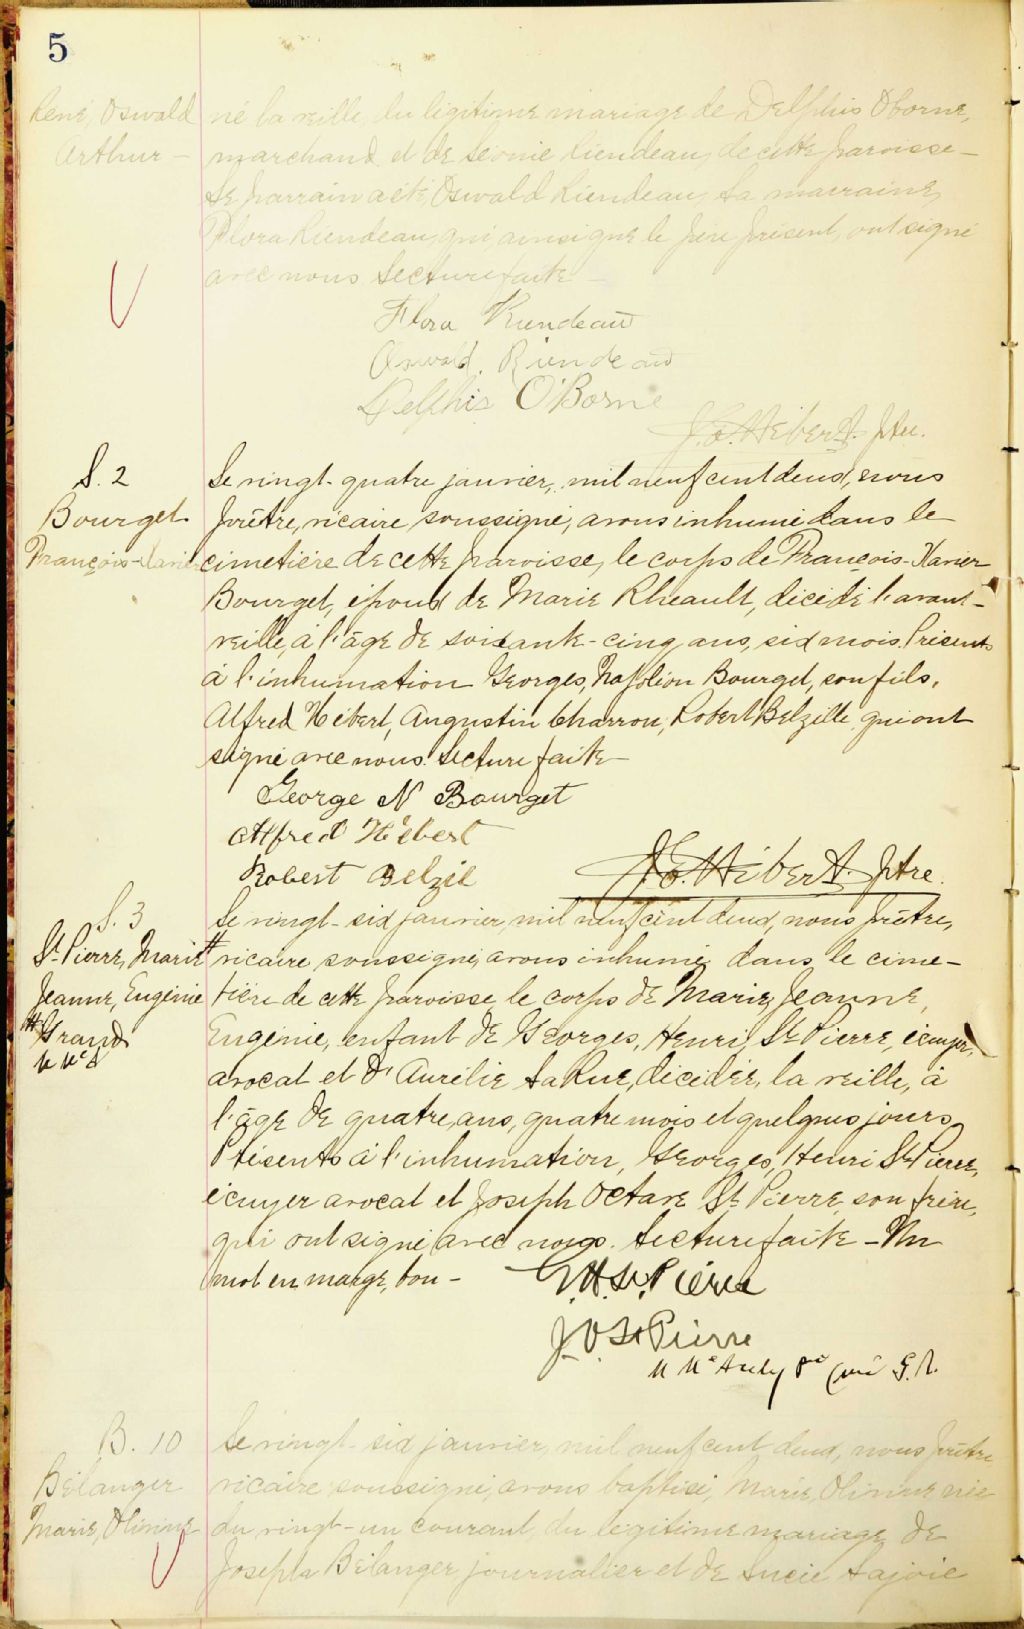 5
René, Oswald
Arthur -
né la veille, du légitime mariage de Delphis Oborne,
marchand et de Léonie Riendeau, de cette paroisse -
Le parrain a été, Oswald Riendeau, la marraine,
Flora Riendeau, qui, ainsi que le père présent, ont signé
avec nous. Lecture faite -
Flora Riendeau
Oswald. Riendeau
Delphis O'Borne
J. E. Hébert. Ptre.
S. 2
Bourget
François-Xavier
Le vingt-quatre janvier, mil neuf cent deux, nous
prêtre, vicaire soussigné, avons inhumé dans le
cimetière de cette paroisse, le corps de François-Xavier
Bourget, époux de Marie Rheault, décédé l'avant-
veille, à l'âge de soixante-cinq ans, six mois. Présents
à l'inhumation Georges, Napoléon Bourget, son fils,
Alfred Hébert, Augustin Charron, Robert Belzille, qui ont
signé avec nous. Lecture faite -
George N Bourget
Alfred Hébert
Robert Belzil
J. E. Hébert. Ptre.
S. 3
St Pierre, Marie
Jeanne, Eugénie
# Grand
Le vingt-six janvier, mil neuf cent deux, nous prêtre,
# vicaire soussigné, avons inhumé dans le cime-
tière de cette paroisse le corps de Marie, Jeanne,
Eugénie, enfant de Georges, Henri, St Pierre, écuyer,
avocat et d'Aurélie LaRue, décédée, la veille, à
l'âge de quatre ans, quatre mois et quelques jours.
Présents à l'inhumation, Georges, Henri St Pierre,
écuyer avocat et Joseph Octave St Pierre, son frère,
qui ont signé avec nous. Lecture faite - Un
mot en marge, bon -
G. H. St. Pierre
J. O St Pierre
B. 10
Bélanger
Marie, Olivine
Le vingt-six janvier, mil neuf cent deux, nous prêtre
vicaire soussigné, avons baptisé, Marie, Olivine née
du vingt-un courant, du légitime mariage de
Joseph Bélanger journalier et de Lucie Lajoie